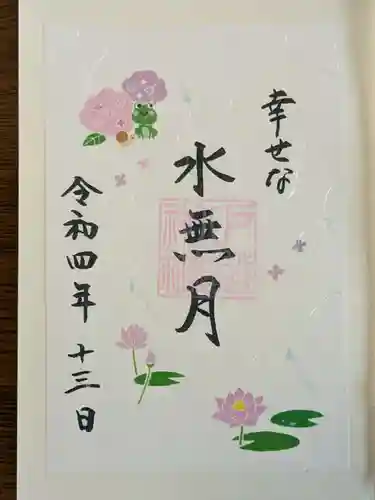 幸せな
水無月
令和四年 十三日